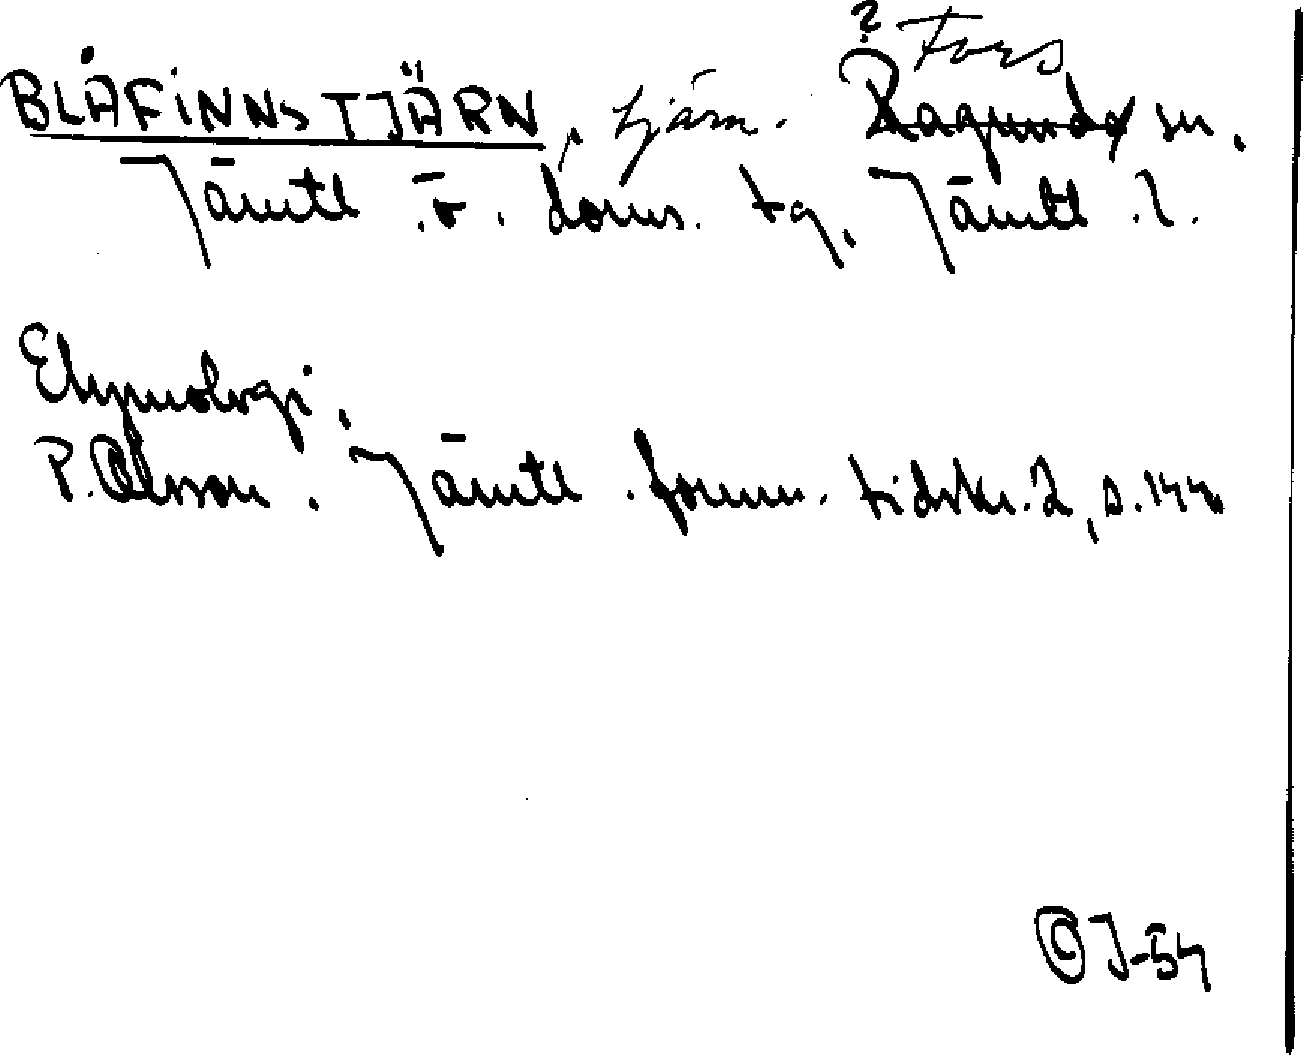 ? Fors
BLÅFINNSTJÄRN, tjärn. Ragunda sn.
Jämtl. ö. doms. tg, Jämtl. l.
Etymologi.
P. Olsson. Jämtl. fornm. tidskr. 2, s. 144
© J-54